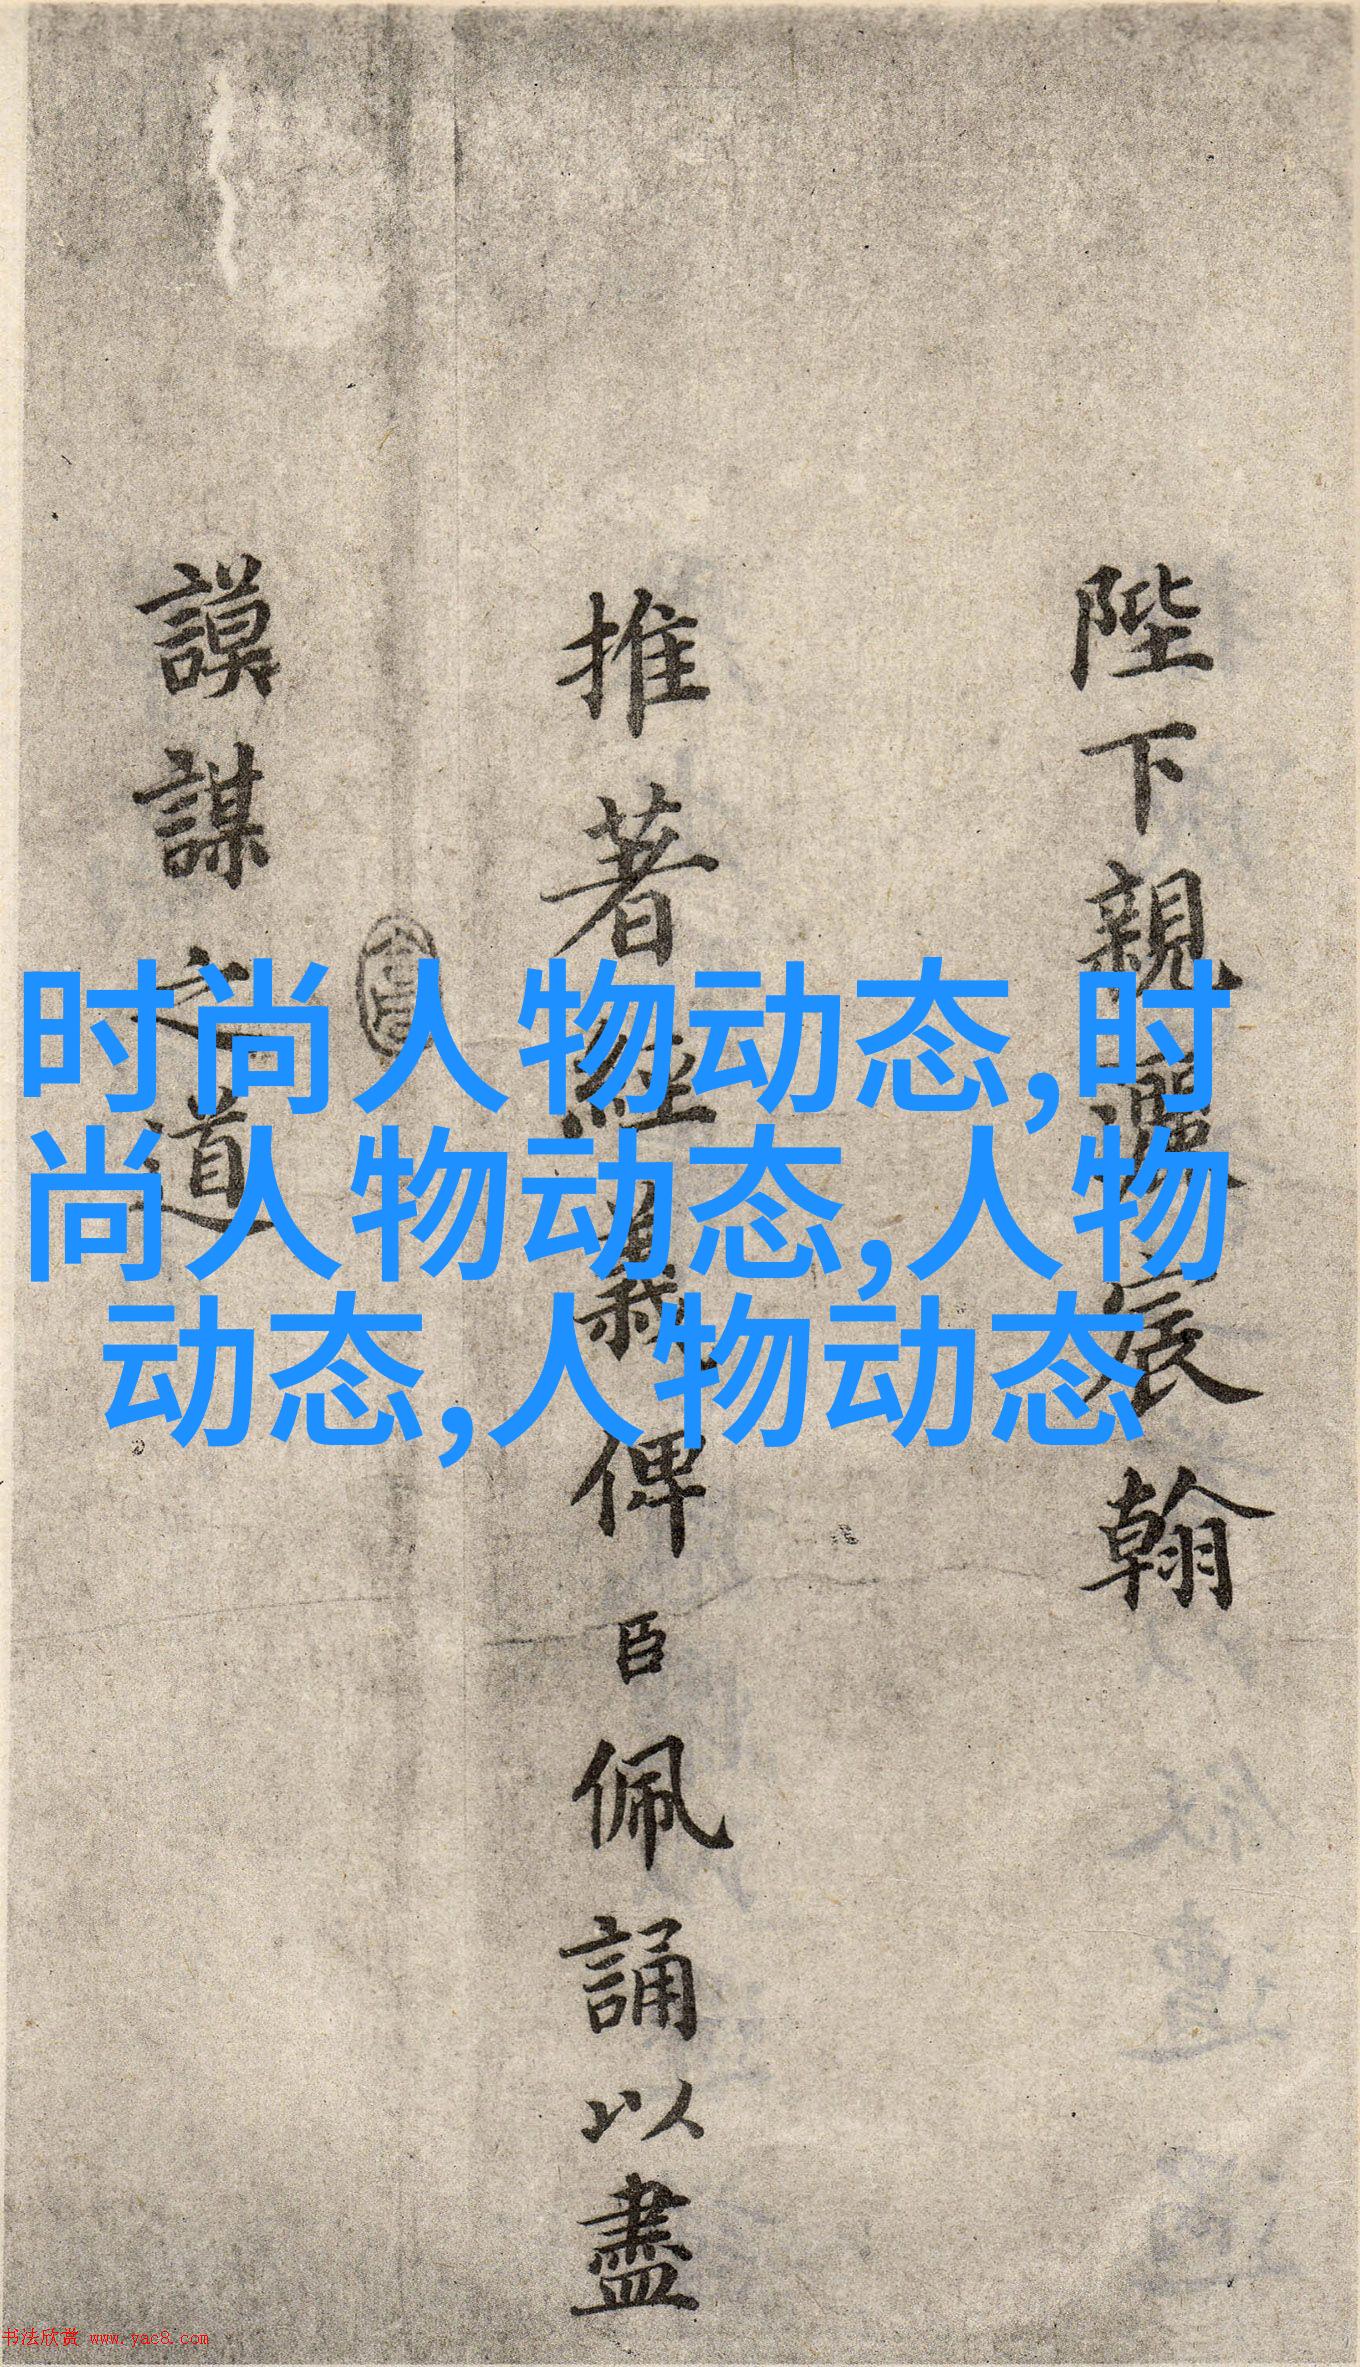 陛下親灑宸翰
推著經義俾臣佩誦以盡
謨謀之道
时尚人物动态,时
尚人物动态,人物
动态,人物动态
书法欣赏 www.yac8.com